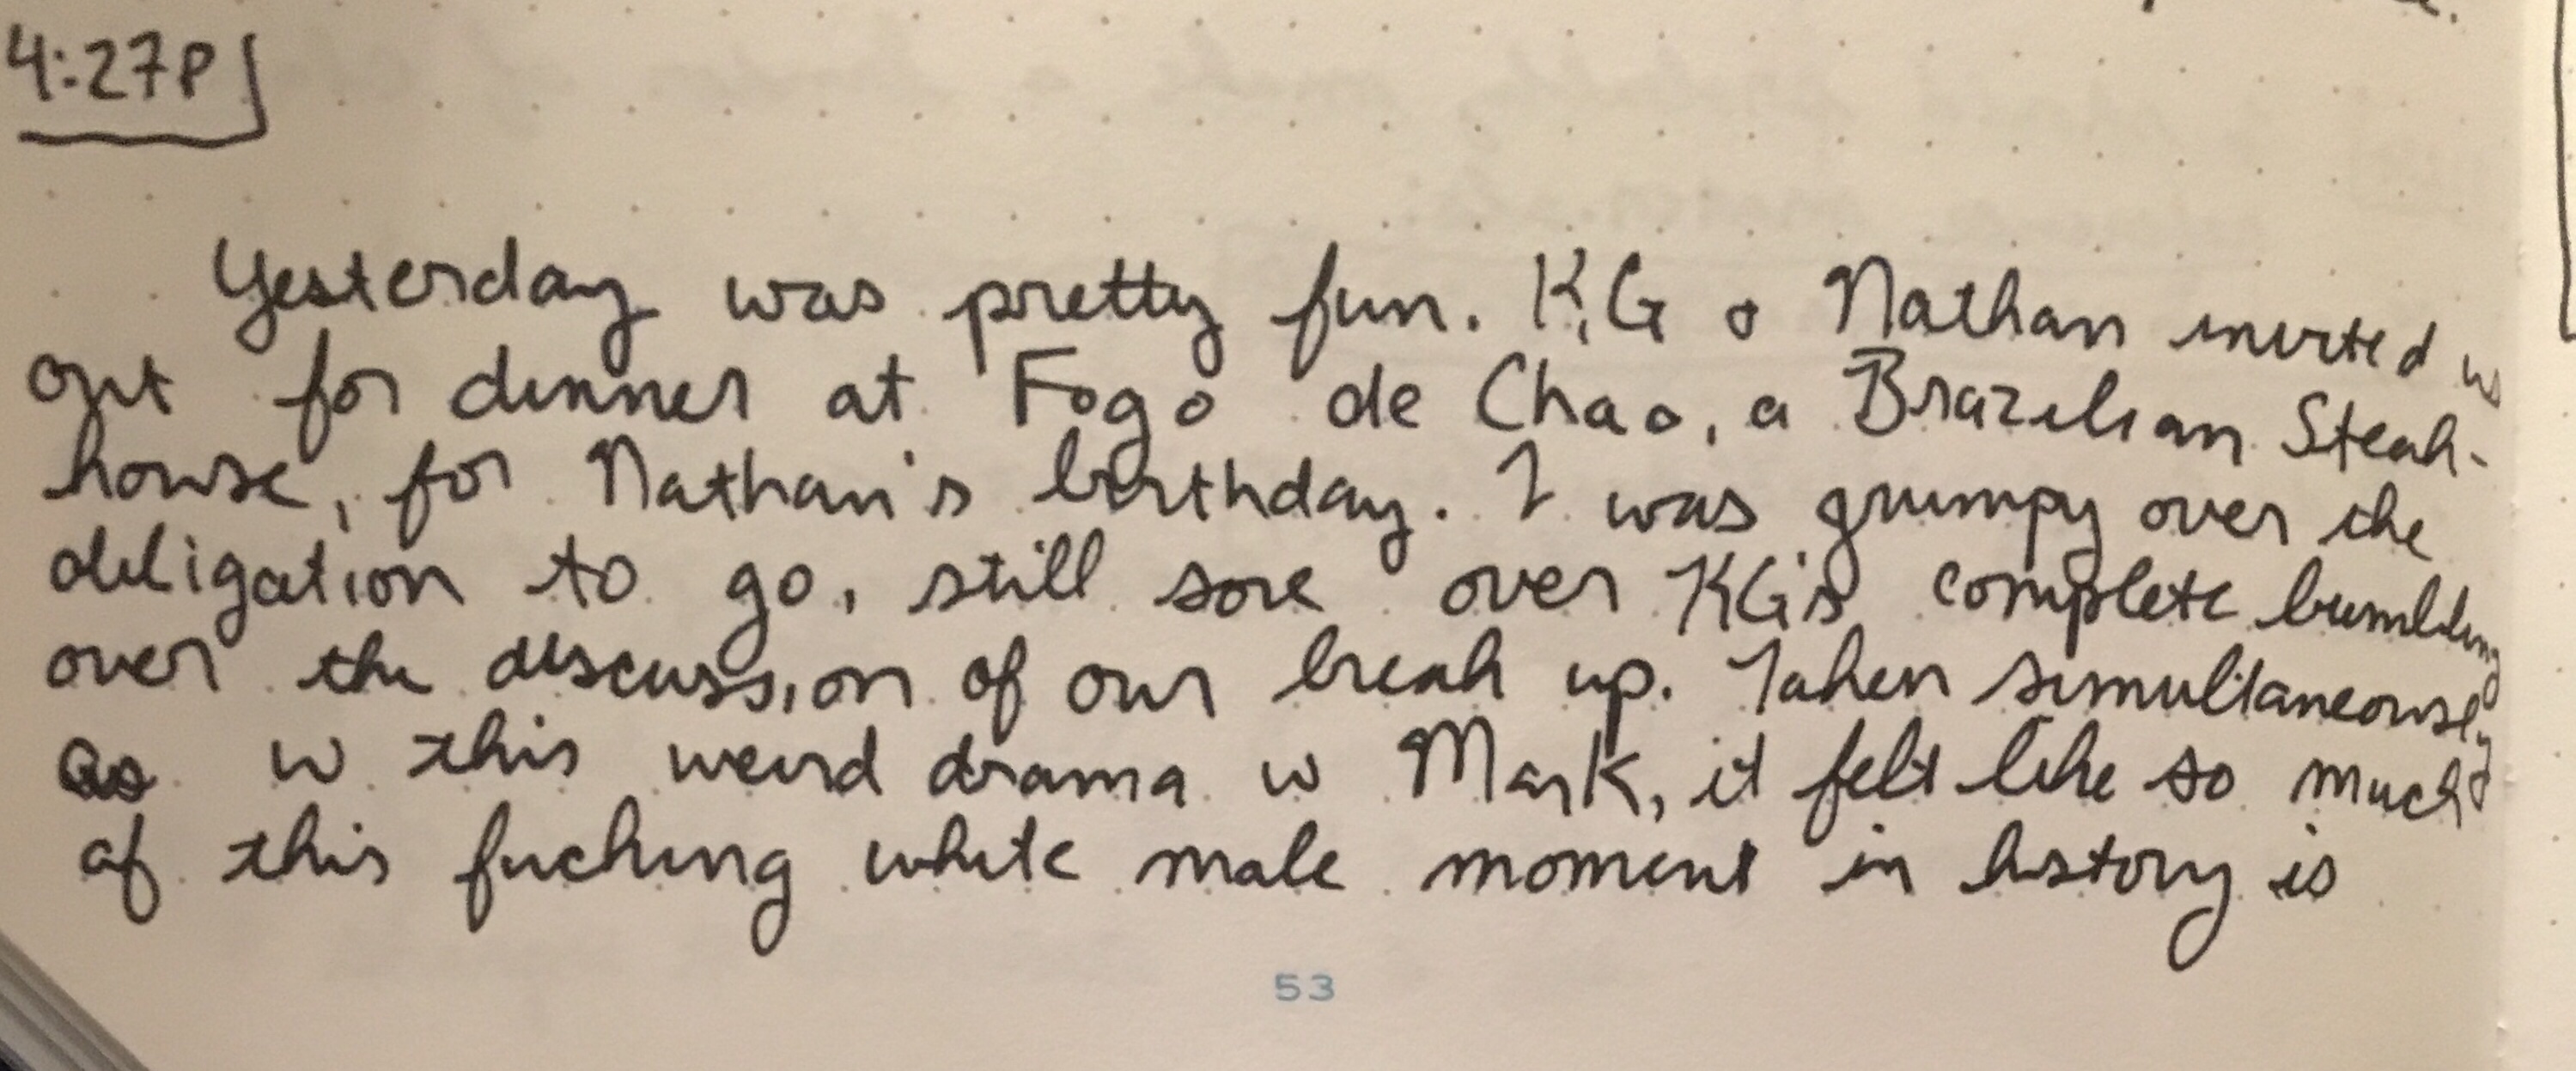 4:27P
Yesterday was pretty fun. KG & Nathan invited us
out for dinner at Fogo de Chao, a Brazilian Steak-
house, for Nathan's birthday. I was grumpy over the
obligation to go, still sore over KG's complete bumbling
over the discussion of our break up. Taken simultaneously
as w this weird drama w Mark, it felt like so much
of this fucking white male moment in history is
53